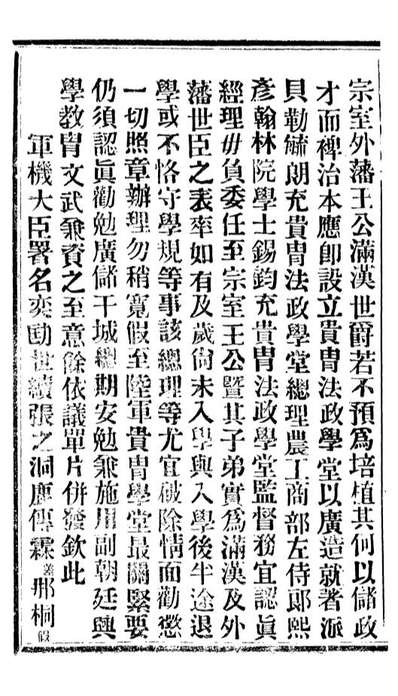 宗室外藩王公滿漢世爵若不預爲培植其何以儲政
才而裨治本應卽設立貴冑法政學堂以廣造就著派
貝勒毓朗充貴冑法政學堂總理農工商部左侍郎熙
彥翰林院學士錫鈞充貴冑法政學堂監督務宜認眞
經理毋負委任至宗室王公曁其子弟實爲滿漢及外
藩世臣之表率如有及歲尙未入學與入學後半途退
學或不恪守學規等事該總理等尤宜破除情面勸懲
一切照章辦理勿稍寬假至陸軍貴冑學堂最關緊要
仍須認眞勸勉廣儲干城總期安勉兼施用副朝廷興
學敎冑文武兼資之至意餘依議單片併發欽此
軍機大臣署名奕劻世續張之洞鹿傳霖差那桐假